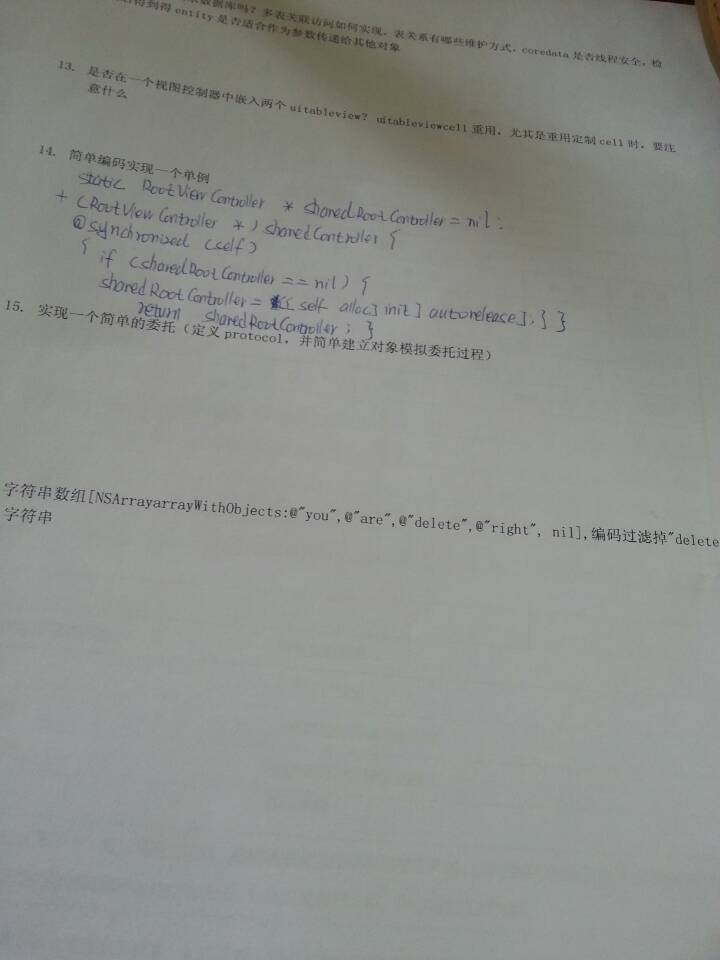 数据库吗?多表关联访问如何实现,表关系有哪些维护方式,coredata 是否线程安全,检
得到得 entity 是否适合作为参数传递给其他对象
13. 是否在一个视图控制器中嵌入两个 uitableview? uitableviewcell 重用,尤其是重用定制 cell 时,要注
意什么
14. 简单编码实现一个单例
static RootViewController * sharedRootController = nil;
+ (RootViewController *) sharedController {
@synchronized (self)
{ if (sharedRootController == nil) {
sharedRootController = [[[self alloc] init] autorelease]; } }
return sharedRootController; }
15. 实现一个简单的委托(定义 protocol,并简单建立对象模拟委托过程)
字符串数组[NSArrayarrayWithObjects:@"you",@"are",@"delete",@"right", nil],编码过滤掉"delete
字符串